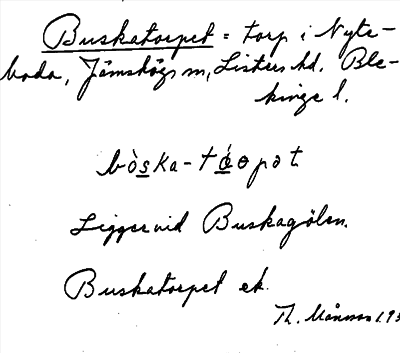 Buskatorpet = torp i Nyte-
boda, Jämshögs sn, Listers hd. Ble-
kinge l.
bòska-tóopət
Ligger vid Buskagölen.
Buskatorpet ek.
Th. Månsson